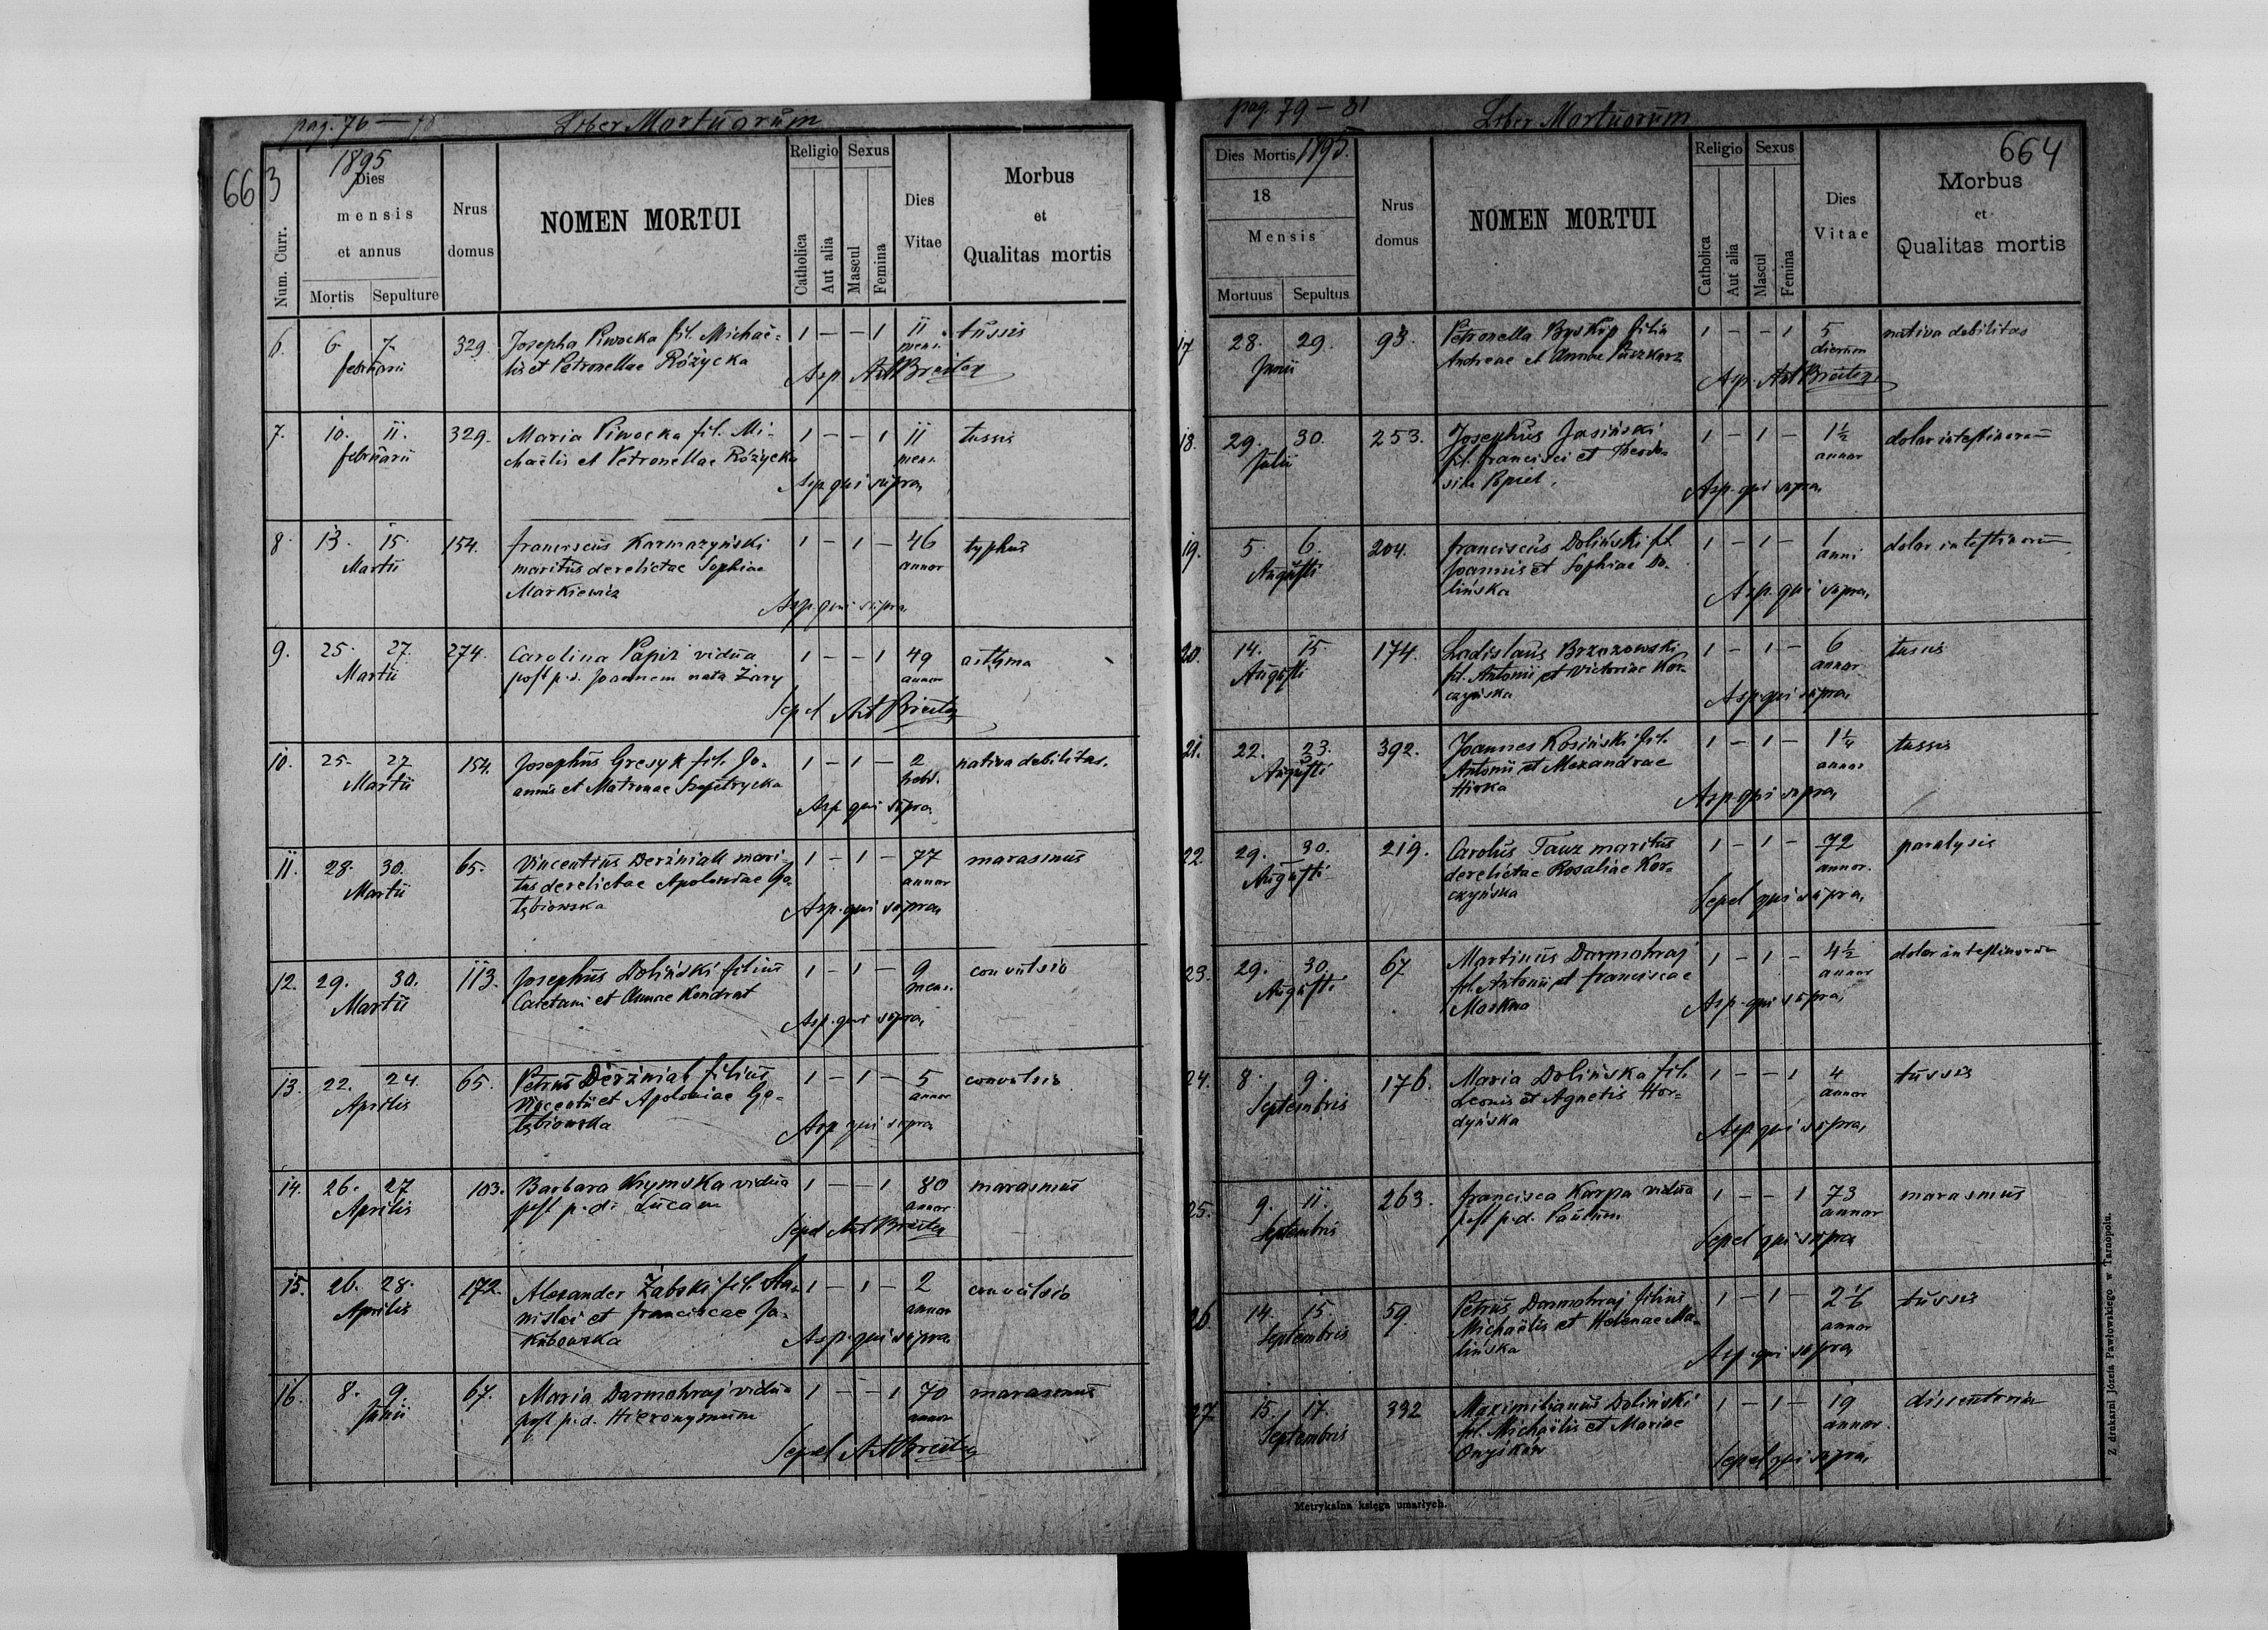 pag. 76 — 78 Liber Mortuorum
663
Num. Curr.
1895
Dies
mensis
et annus
Mortis Sepulture
Nrus
domus
NOMEN MORTUI
Religio Sexus
Catholica
Aut alia
Mascul
Femina
Dies
Vitae
Morbus
et
Qualitas mortis
6. 6. 7. 329. Josepha Piwocka fil. Michaë- 1 — — 1 11 tussis
februarii lis et Petronellae Różycka mens.
Asp. Ant Breiter
7. 10. 11. 329. Maria Piwocka fil. Mi- 1 — — 1 11 tussis
februarii chaëlis et Petronellae Różycka mens.
Asp. qui supra,
8. 13. 15. 154. franciscus Karmazyński 1 — 1 — 46 typhus
Martii maritus derelictae Sophiae annor
Markiewicz
Asp. qui supra
9. 25. 27. 274. Carolina Papiż vidua 1 — — 1 49 asthma
Martii post p. d. Joannem nata Żary annor
Sepel Ant Breiter
10. 25. 27. 154. Josephus Gresyk fil. Jo- 1 — 1 — 2 nativa debilitas.
Martii annis et Matronae Szepetrycka hebd.
Asp. qui supra
11. 28. 30. 65. Vincentius Derżniak mari- 1 — 1 — 77 marasmus
Martii tus derelictae Apoloniae Go- annor
łębiowska
Asp. qui supra,
12. 29. 30. 113. Josephus Doliński filius 1 — 1 — 9 convulsio
Martii Caietani et Annae Kondrat mens.
Asp. qui supra,
13. 22. 24. 65. Petrus Derżniak filius 1 — 1 — 5 convulsio
Aprilis Vincentii et Apoloniae Go- annor
łębiowska
Asp qui supra
14. 26. 27 103. Barbara Krymska vidua 1 — — 1 80 marasmus
Aprilis post p. d. Lucam annor
Sepel Ant Breiter
15. 26. 28. 172. Alexander Żabski fil. Sta- 1 — 1 — 2 convulsio
Aprilis nislai et franciscae Ja- annor
kubowska
Asp. qui supra
16. 8. 9. 67. Maria Darmohraj vidua 1 — — 1 70 marasmus
Junii post p. d. Hieronymum annor
Sepel Ant Breiter
pag. 79 — 81 Liber Mortuorum
664
Dies Mortis 1895.
18
Mensis
Mortuus Sepultus
Nrus
domus
NOMEN MORTUI
Religio Sexus
Catholica
Aut alia
Mascul
Femina
Dies
Vitae
Morbus
et
Qualitas mortis
17 28. 29. 93. Petronella filia 1 — — 1 5 nativa debilitas
Junii Andreae et Annae Puszkarz dierum
Asp. Ant Breiter
18. 29. 30. 253. Josephus Jasiński 1 — 1 — 1½ dolor intestinorum
Julii fil. francisci et Theodo- annor
siae
Asp. qui supra,
19. 5. 6. 204. franciscus Doliński fil. 1 — 1 — 1 dolor intestinorum
Augusti Joannis et Sophiae Do- anni
lińska
Asp. qui supra,
20. 14. 15. 174. Ladislaus Brzozowski 1 — 1 — 6 tussis
Augusti fil. Antonii et Victoriae Kor- annor
czyńska
Asp. qui supra,
21. 22. 23. 392. Joannes Kosiński fil. 1 — 1 — 1¼ tussis
Augusti Antonii et Alexandrae annor
Hirka
Asp. qui supra,
22. 29. 30. 219. Carolus Tauz maritus 1 — 1 — 72 paralysis
Augusti derelictae Rosaliae Kor- annor.
czyńska
Sepel qui supra,
23. 29. 30. 67 Martinus Darmohraj 1 — 1 — 4½ dolor intestinorum
Augusti fil. Antonii et franciscae annor
Moskwa
Asp. qui supra,
24. 8. 9. 176. Maria Dolińska fil. 1 — — 1 4 tussis
Septembris Leonis et Agnetis Hor- annor
dyńska
Asp. qui supra,
25. 9. 11. 263. francisca Karpa vidua 1 — — 1 73 marasmus
Septembris post p. d. Paulum annor
Sepel qui supra
26. 14. 15. 59. Petrus Darmohraj filius 1 — 1 — tussis
Septembris Michaëlis et Helenae Ma- annor
lińska
Asp. qui supra
27. 15. 17. 392 Maximilianus Doliński 1 — 1 — 19 dissenteria
Septembris fil. Michaëlis et Mariae annor.
Onyśków
Sepel qui supra,
Metrykalna księga umarłych.
Z drukarni Józefa Pawłowskiego w Tarnopolu.